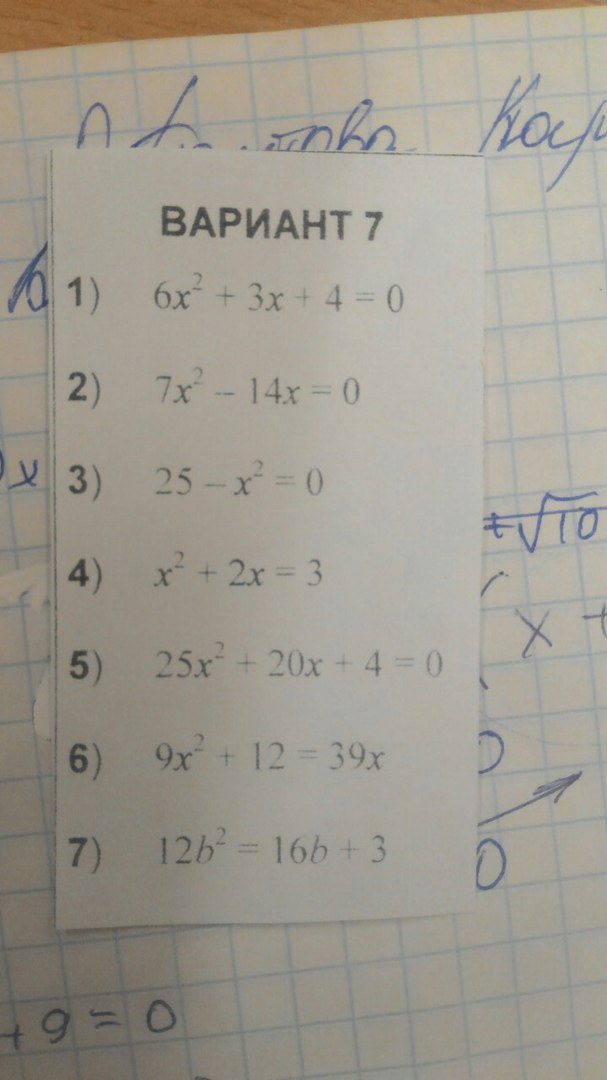 ВАРИАНТ 7
1) 6x² + 3x + 4 = 0
2) 7x² − 14x = 0
3) 25 − x² = 0
x
±√10
4) x² + 2x = 3
x +
5) 25x² + 20x + 4 = 0
6) 9x² + 12 = 39x
0
7) 12b² = 16b + 3
0
+ 9 = 0